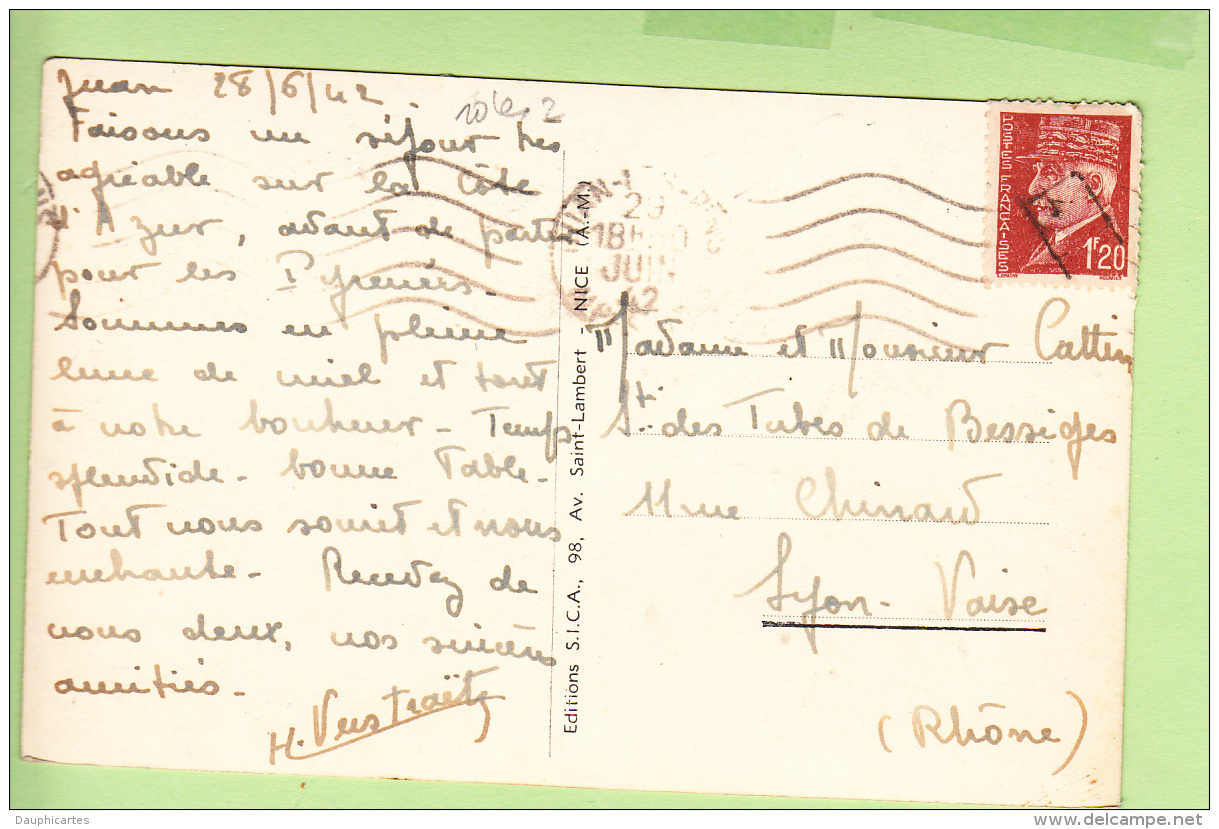 Juan 28/6/42
Faisons un séjour très
agréable sur la Côte
d'Azur, avant de partir
pour les Pyrenées.
Sommes en pleine
lune de miel et tout
à notre bonheur - Temps
splendide - bonne Table -
Tout nous sourit et nous
enchante - Recevez de
nous deux, nos sincères
amitiés -
H. Verstraëte
Editions S.I.C.A., 98, Av. Saint-Lambert - NICE (A.-M.)
29
18H
JUIN
42
POSTES FRANÇAISES
1F20
Madame et Monsieur Cattin
St. des Tubes de Bessèges
11 rue Chinard
Lyon - Vaise
(Rhône)
Dauphicartes
delcampe.net